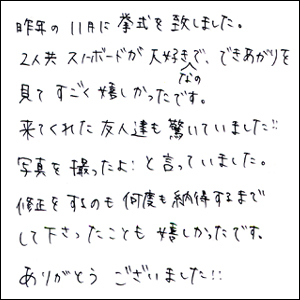 昨年の11月に挙式を致しました。
2人共スノーボードが大好きなので、できあがりを
見てすごく嬉しかったです。
来てくれた友人達も驚いていました!!
写真を撮ったよ!と言っていました。
修正をするのも何度も納得するまで
して下さったことも嬉しかったです。
ありがとうございました!!